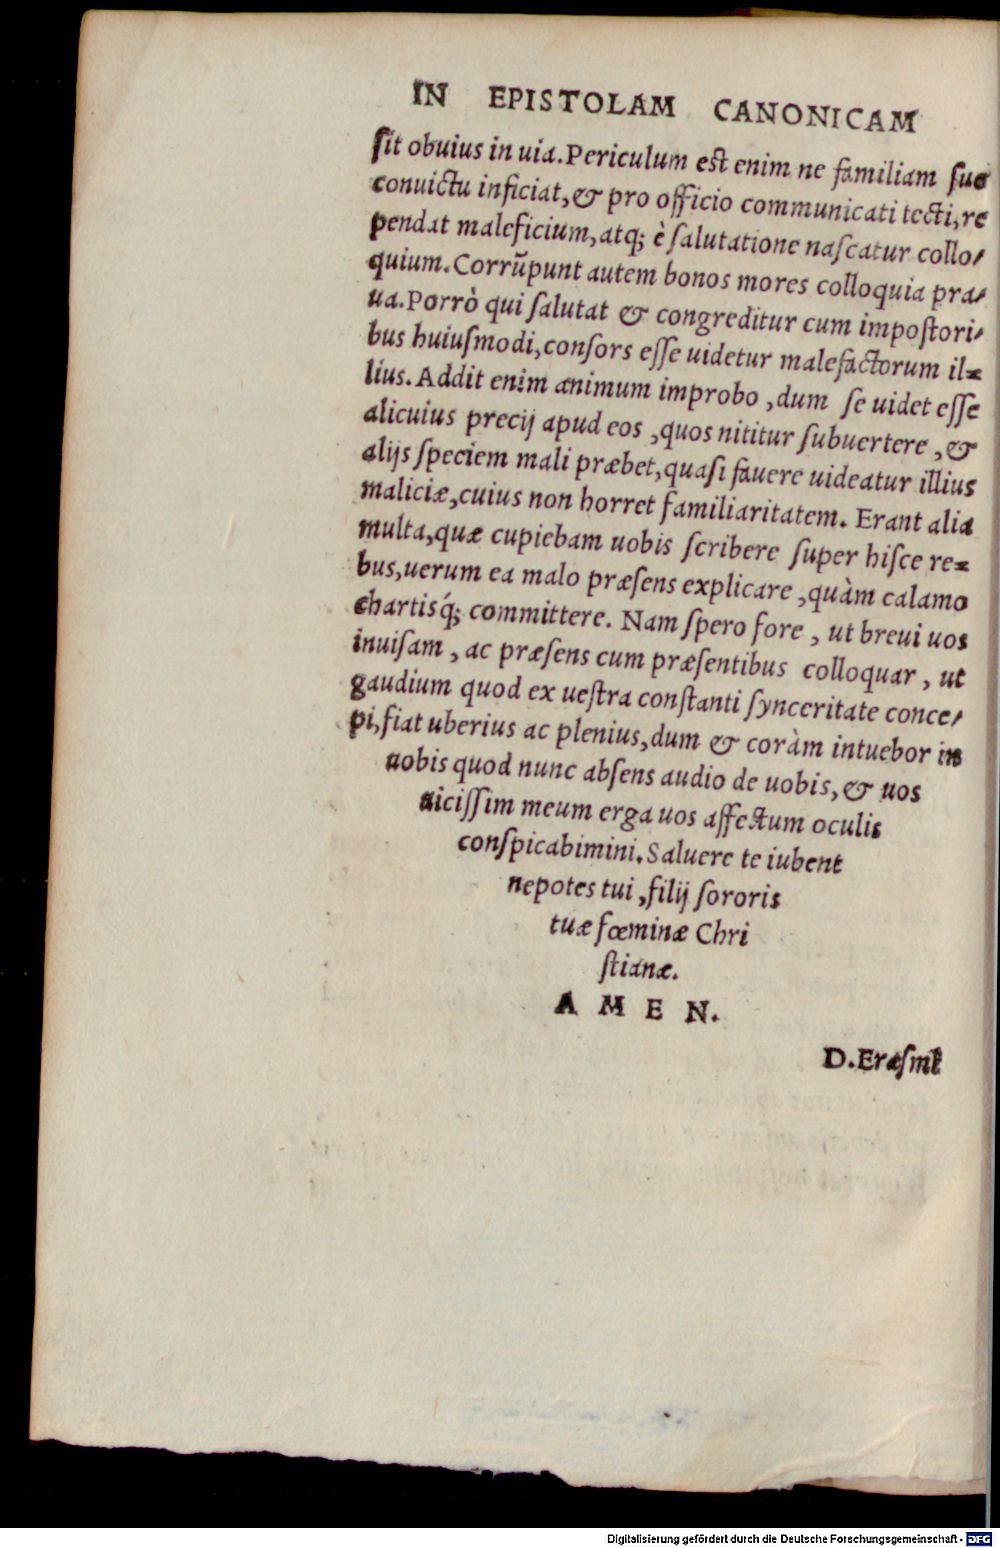 IN EPISTOLAM CANONICAM
ſit obuius in uia. Periculum eſt enim ne familiam ſuo
conuictu inficiat, & pro officio communicati tecti, re
pendat maleficium, atq; è ſalutatione naſcatur collo/
quium. Corrūpunt autem bonos mores colloquia pra/
ua. Porrò qui ſalutat & congreditur cum impoſtori/
bus huiuſmodi, conſors eſſe uidetur malefactorum il=
lius. Addit enim animum improbo, dum ſe uidet eſſe
alicuius precij apud eos, quos nititur ſubuertere, &
alijs ſpeciem mali præbet, quaſi fauere uideatur illius
maliciæ, cuius non horret familiaritatem. Erant alia
multa, quæ cupiebam uobis ſcribere ſuper hiſce re=
bus, uerum ea malo præſens explicare, quàm calamo
chartisq́; committere. Nam ſpero fore, ut breui uos
inuiſam, ac præſens cum præſentibus colloquar, ut
gaudium quod ex ueſtra conſtanti ſynceritate conce/
pi, fiat uberius ac plenius, dum & coràm intuebor in
uobis quod nunc abſens audio de uobis, & uos
uiciſſim meum erga uos affectum oculis
conſpicabimini. Saluere te iubent
nepotes tui, filij ſororis
tuæ fœminæ Chri
ſtianæ.
A M E N.
D. Eraſmi
Digitalisierung gefördert durch die Deutsche Forschungsgemeinschaft - DFG